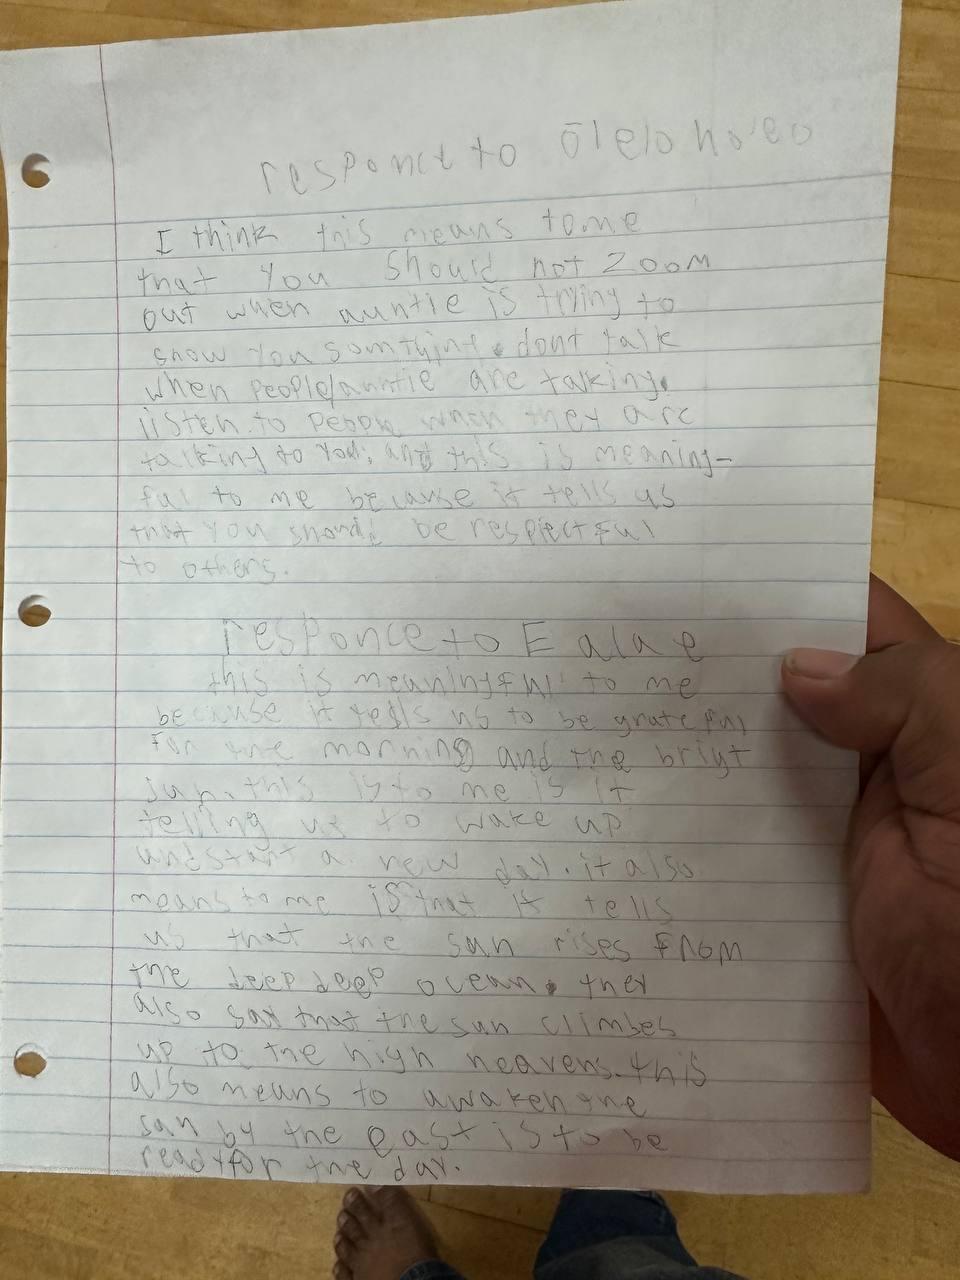 responct to ōlelo no'eo
I think this means to me
that you should not zoom
out when auntie is trying to
show you somthing. dont talk
when people/auntie are talking.
listen to people when they are
talking to you; and this is meaning-
ful to me because it tells us
that you should be respectful
to others.
responce to E ala e
this is meaningful to me
because it tells us to be grateful
for the morning and the brigt
sun. this is to me is it
telling us to wake up
and start a new day. it also
means to me is that it tells
us that the sun rises from
the deep deep ocean. they
also say that the sun climbes
up to the high heavens. this
also means to awaken the
sun by the east is to be
ready for the day.